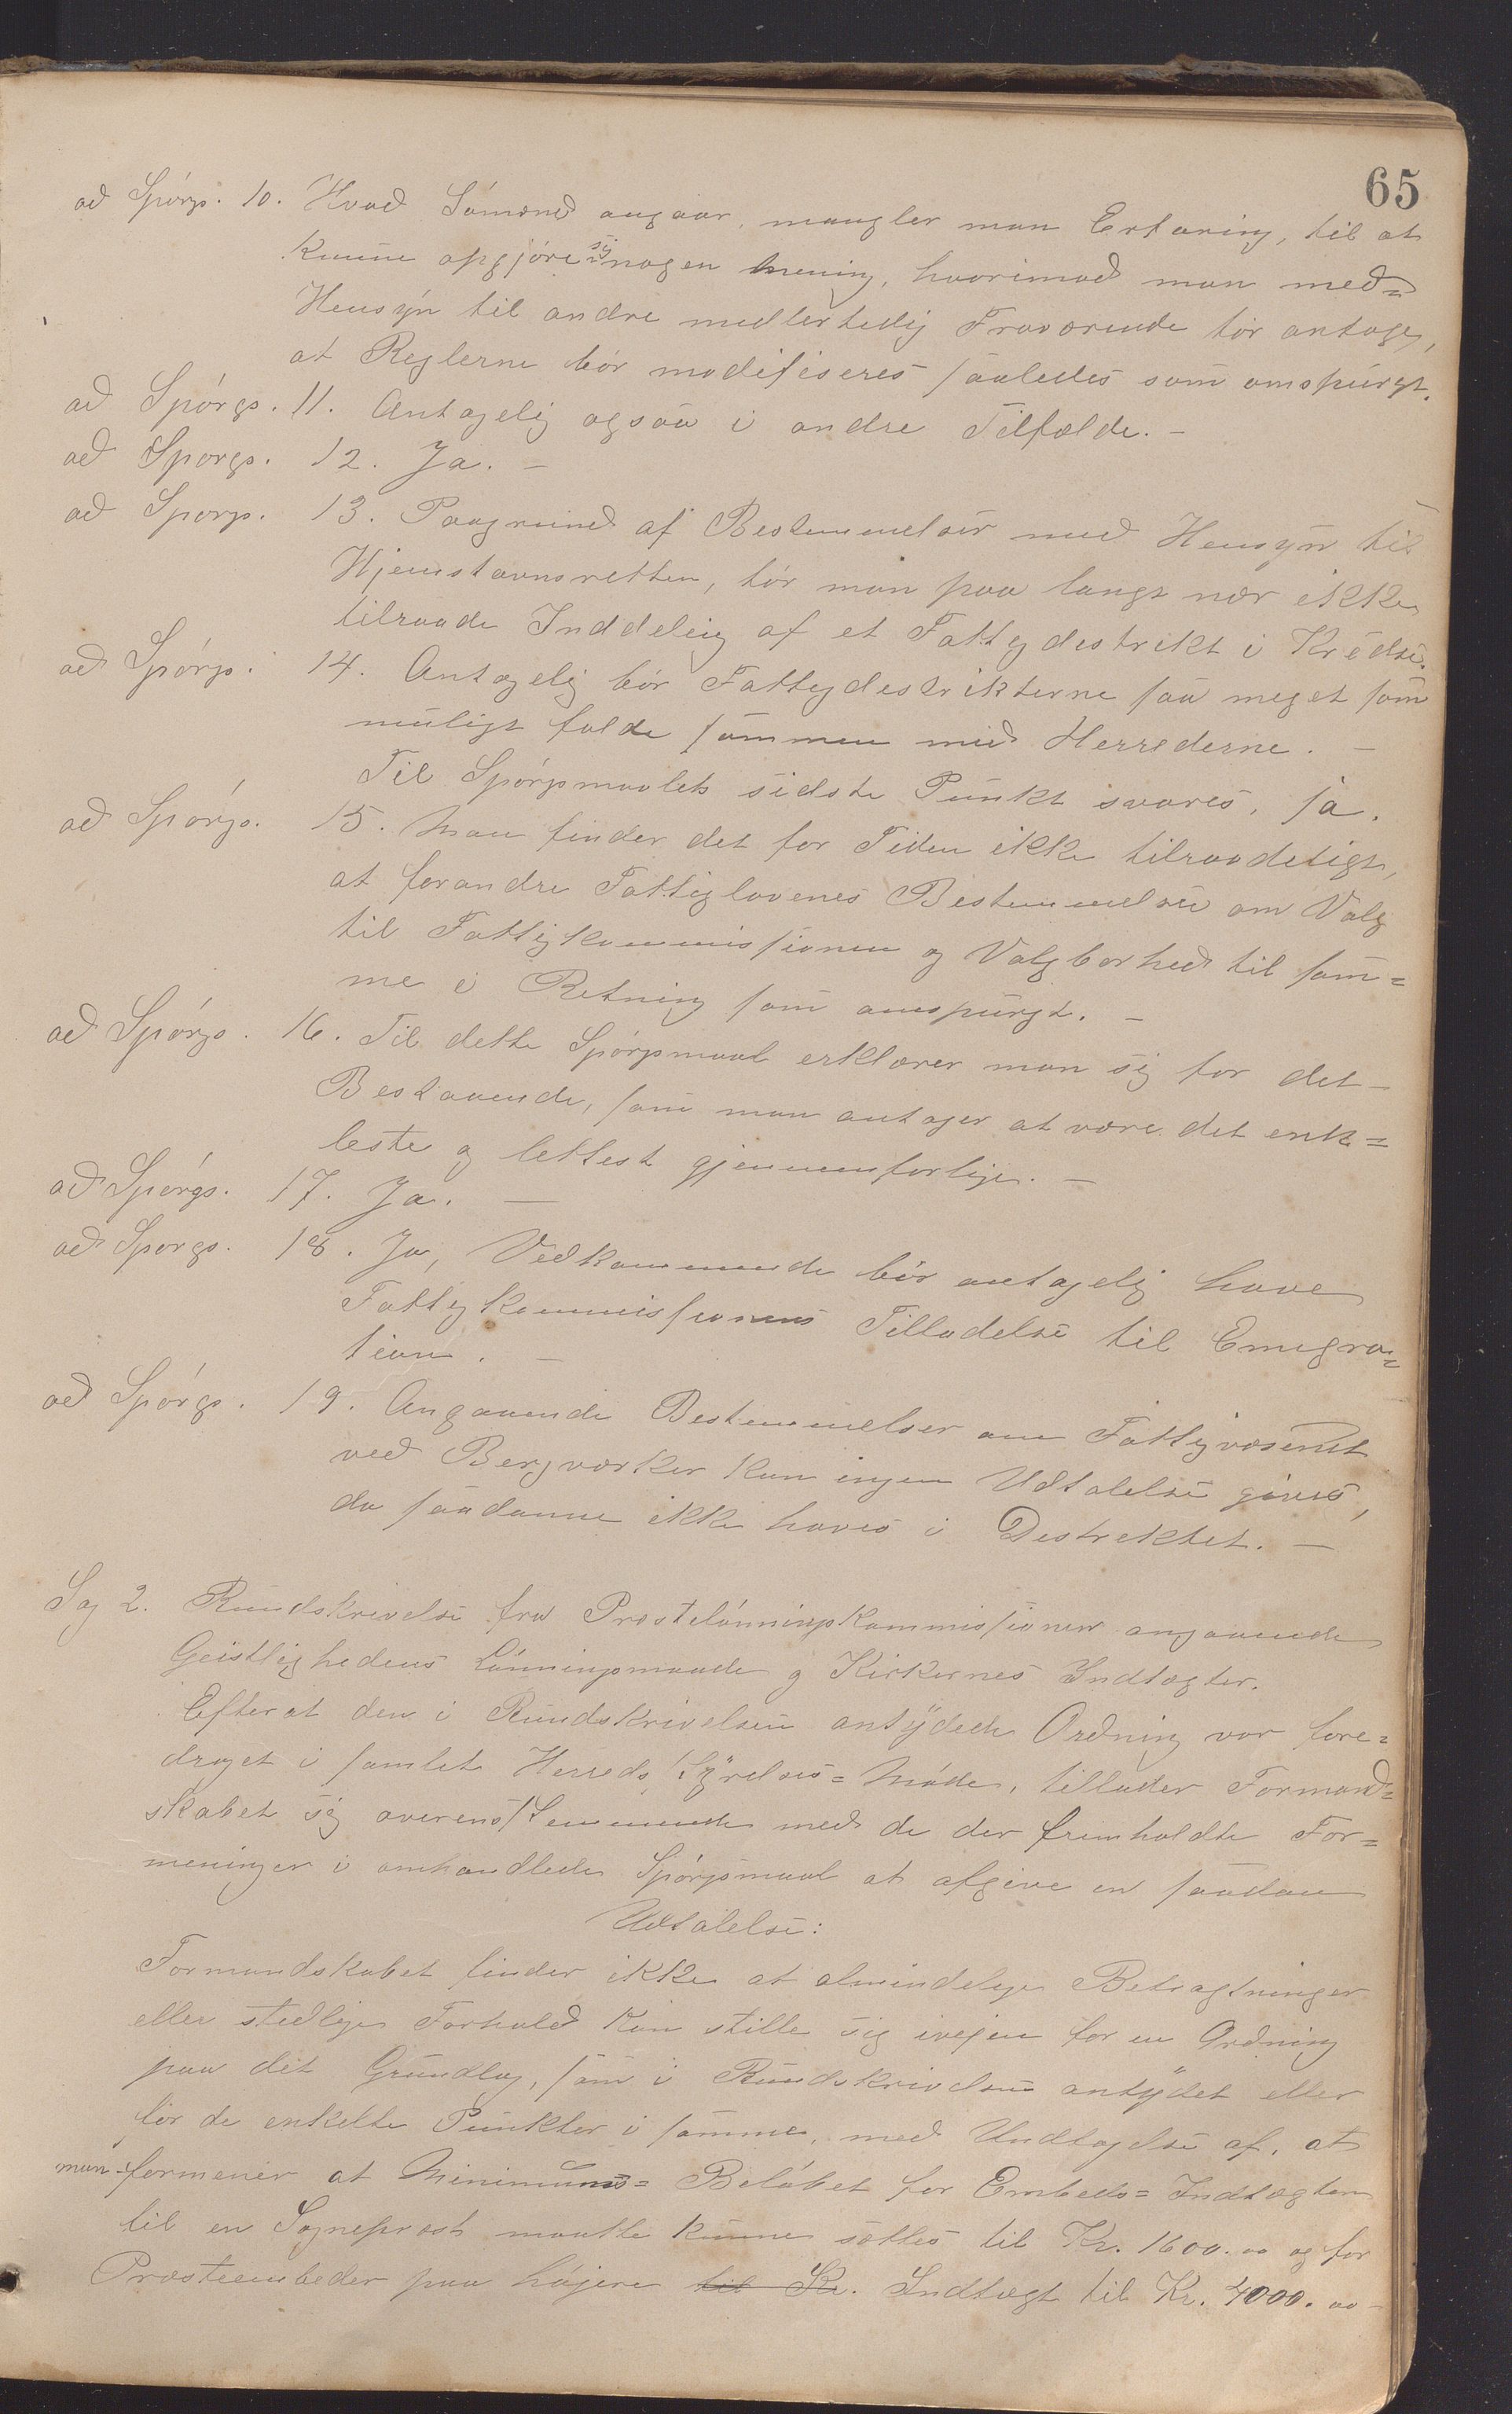 65
ad Spörgs. 10. Hvad Sömænd angaar, mangler man Erfaring, til at
kunne opgjöre sig nogen Mening, hvorimod man med=
Hensÿn til andre midlertidig Fraværende tör antage,
at Reglerne bör modifiseres saaledes som omspurgt.
ad Spörgs. 11. Antagelig ogsaa i andre Tilfælde. –
ad Spörgs. 12. Ja. –
ad Spörgs. 13. Paagrund af Bestemmelser med Hensÿn til
Hjemstavnsretten, tör man paa langt nær ikke
tilraade Inddeling af et Fattigdistrikt i Kredse.
ad Spörgs. 14. Antagelig bör Fattigdistrikterne saa meget som
muligt falde sammen med Herrederne. –
Til Spörgsmaalets sidste Punkt svares, ja.
ad Spörgs. 15. Man finder det for Tiden ikke tilraadeligt,
at forandre Fattiglovenes Bestemmelse om Valg
til Fattigkommissionen og Valgbarhed til sam=
me i Retning som omspurgt. –
ad Spörgs. 16. Til dette Spörgsmaal erklærer man sig for det –
Bestaaende, som man antager at være det enk=
leste og lettest gjennemförlige. –
ad Spörgs. 17. Ja. –
ad Spörgs. 18. Ja, Vedkommende bör antagelig have
Fattigkommissionens Tilladelse til Emigra=
tion. –
ad Spörgs. 19. Angaaende Bestemmelser om Fattigvæsenet
ved Bergværker kan ingen Udtalelse gives,
da saadanne ikke haves i Destrektet. –
Sag 2. Rundskrivelse fra Præstelönningskommissionen angaaende
Geistlighedens Lönningsmaade og Kirkernes Indtægter.
Efterat den i Rundskrivelsen antÿdede Ordning var fore=
draget i samlet Herreds Stÿrelses= Möde, tillader Formand=
skabet sig overensstemmende med de der fremholdte For=
meninger i omhandlede Spörgsmaal at afgive en saadan
Udtalelse:
Formandskabet finder ikke at almindelige Betragtninger
eller stedlige Forhold kan stille sig iveien for en Ordning
paa det Grundlag, som i Rundskrivelsen antÿdet eller
for de enkelte Punkter i samme, med Undtagelse af, at
man formener at Minimums= Belöbet for Embeds= Indtægten
til en Sognepræst maatte kunne sættes til Kr. 1600.00 og for
Præsteembeder paa höjere til Kr. Indtægt til Kr. 4000.00 –